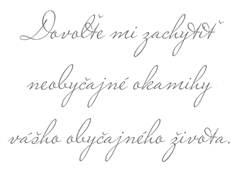 Dovoľte mi zachytiť
neobyčajné okamihy
vášho obyčajného života.